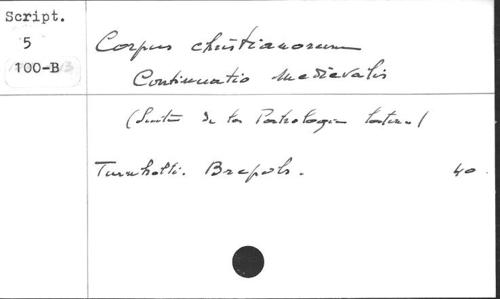 Script.
5
100-B
Corpus christianorum
Continuatio Mediaevalis
( de la Patrologia latina)
Turnholti. Brepols. 40.